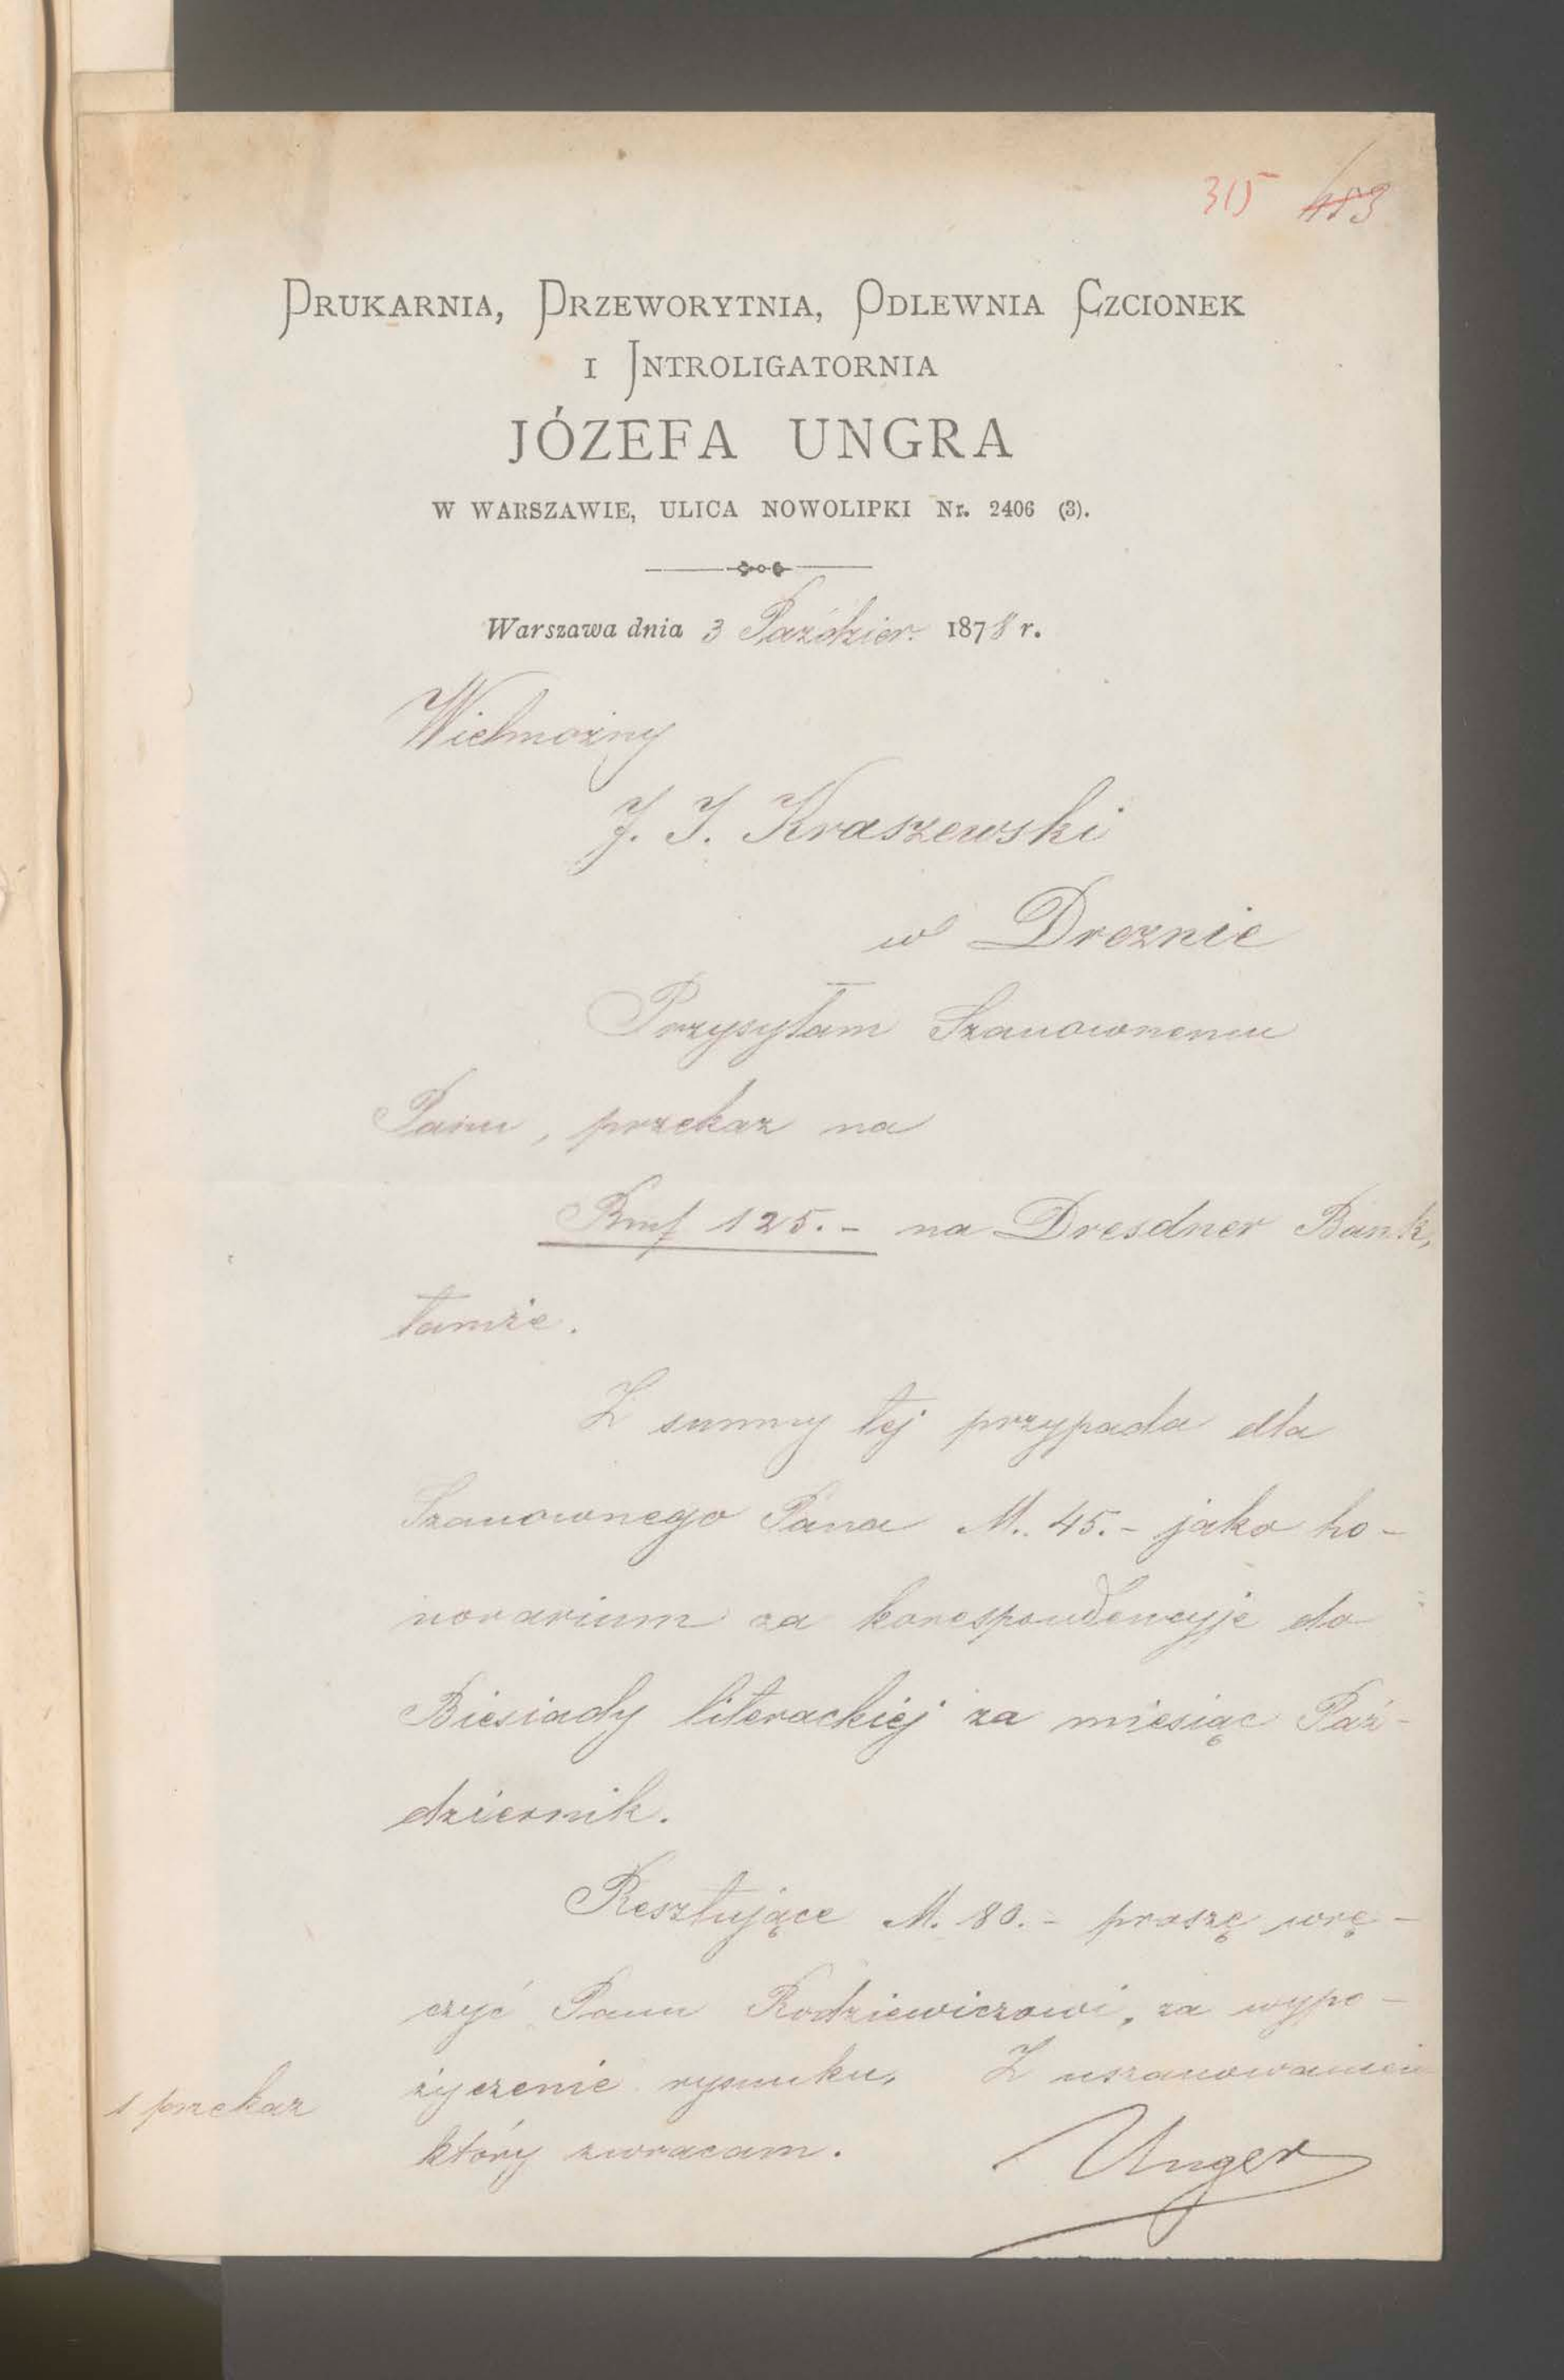 315 483
Drukarnia, Drzeworytnia, Odlewnia Czcionek
i Introligatornia
JÓZEFA UNGRA
W WARSZAWIE, ULICA NOWOLIPKI Nr. 2406 (3).
Warszawa dnia 3 Paździer. 1878 r.
Wielmożny
J. I. Kraszewski
w Dreznie
Przysyłam Szanownemu
Panu, przekaz na
Rmf 125.- na Dresdner Bank,
tamże.
Z summy tej przypada dla
Szanownego Pana M. 45.- jako ho-
norarium za korespondencyje do
Biesiady literackiéj za miesiąc Paź-
dziernik.
Resztujące M. 80.- proszę wrę-
czyć Panu Rodziewiczowi, za wypo-
życzenie rysunku, Z uszanowaniem
1 przekaz
który zwracam.
Unger